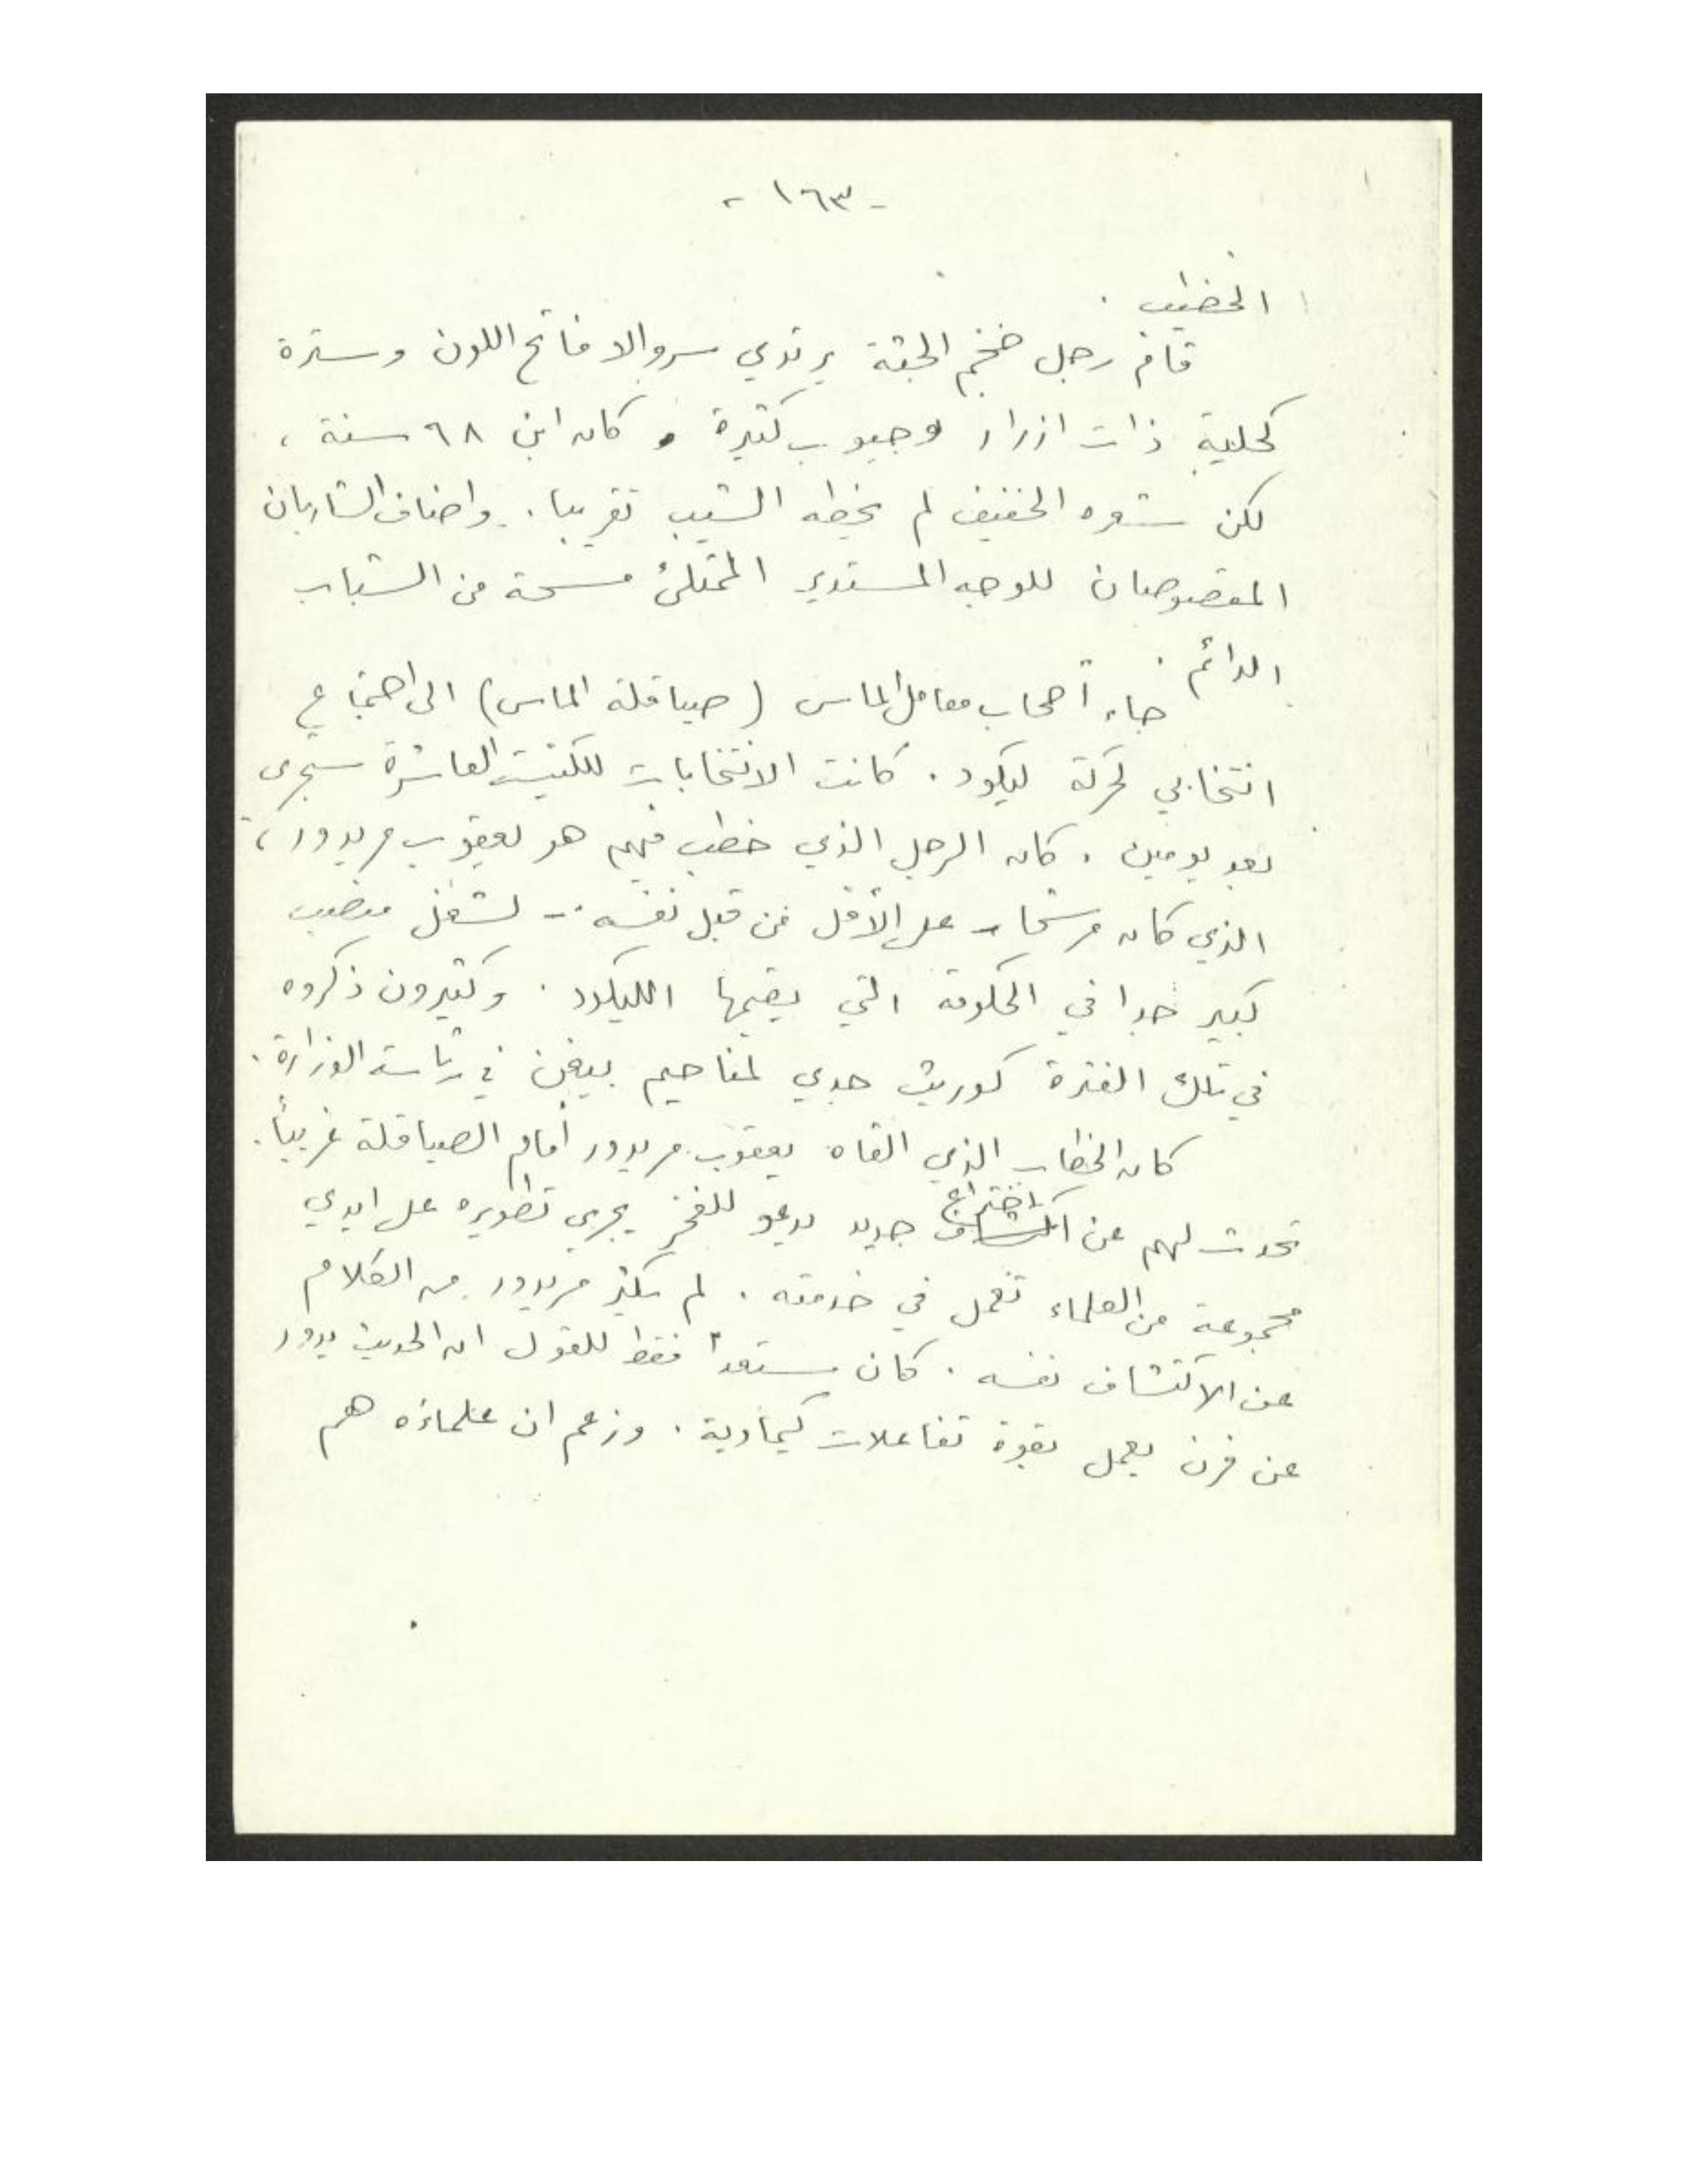 - ١٦٣ -
الخطيب .
قام رجل ضخم الجثة يرتدي سروالا فاتح اللون وسترة
كحلية ذات ازرار وجيوب كثيرة . كان ابن ٦٨ سنة ،
لكن شعره الخفيف لم يخطه الشيب تقريبا . واضاف الشاربان
المقصوصان للوجه المستدير الممتلئ مسحة من الشباب
الدائم .
جاء أصحاب معامل الماس (صياقلة الماس) الى اجتماع
انتخابي لحركة ليكود . كانت الانتخابات للكنيست العاشرة ستجرى
بعد يومين . كان الرجل الذي خطب فيهم هو يعقوب مريدور ،
الذي كان مرشحا - على الأقل من قبل نفسه - لشغل منصب
كبير جدا في الحكومة التي يقيمها الليكود . وكثيرون ذكروه
في تلك الفترة كوريث جدي لمناحيم بيغن في رئاسة الوزارة .
كان الخطاب الذي القاه يعقوب مريدور أمام الصياقلة غريباً .
تحدث لهم عن اختراع جديد يدعو للفخر يجري تطويره على ايدي
مجموعة من العلماء تعمل في خدمته . لم يكثر مريدور من الكلام
عن الاكتشاف نفسه . كان مستعداً فقط للقول ان الحديث يدور
عن فرن يعمل بقوة تفاعلات كيماوية . وزعم ان علماءه هم